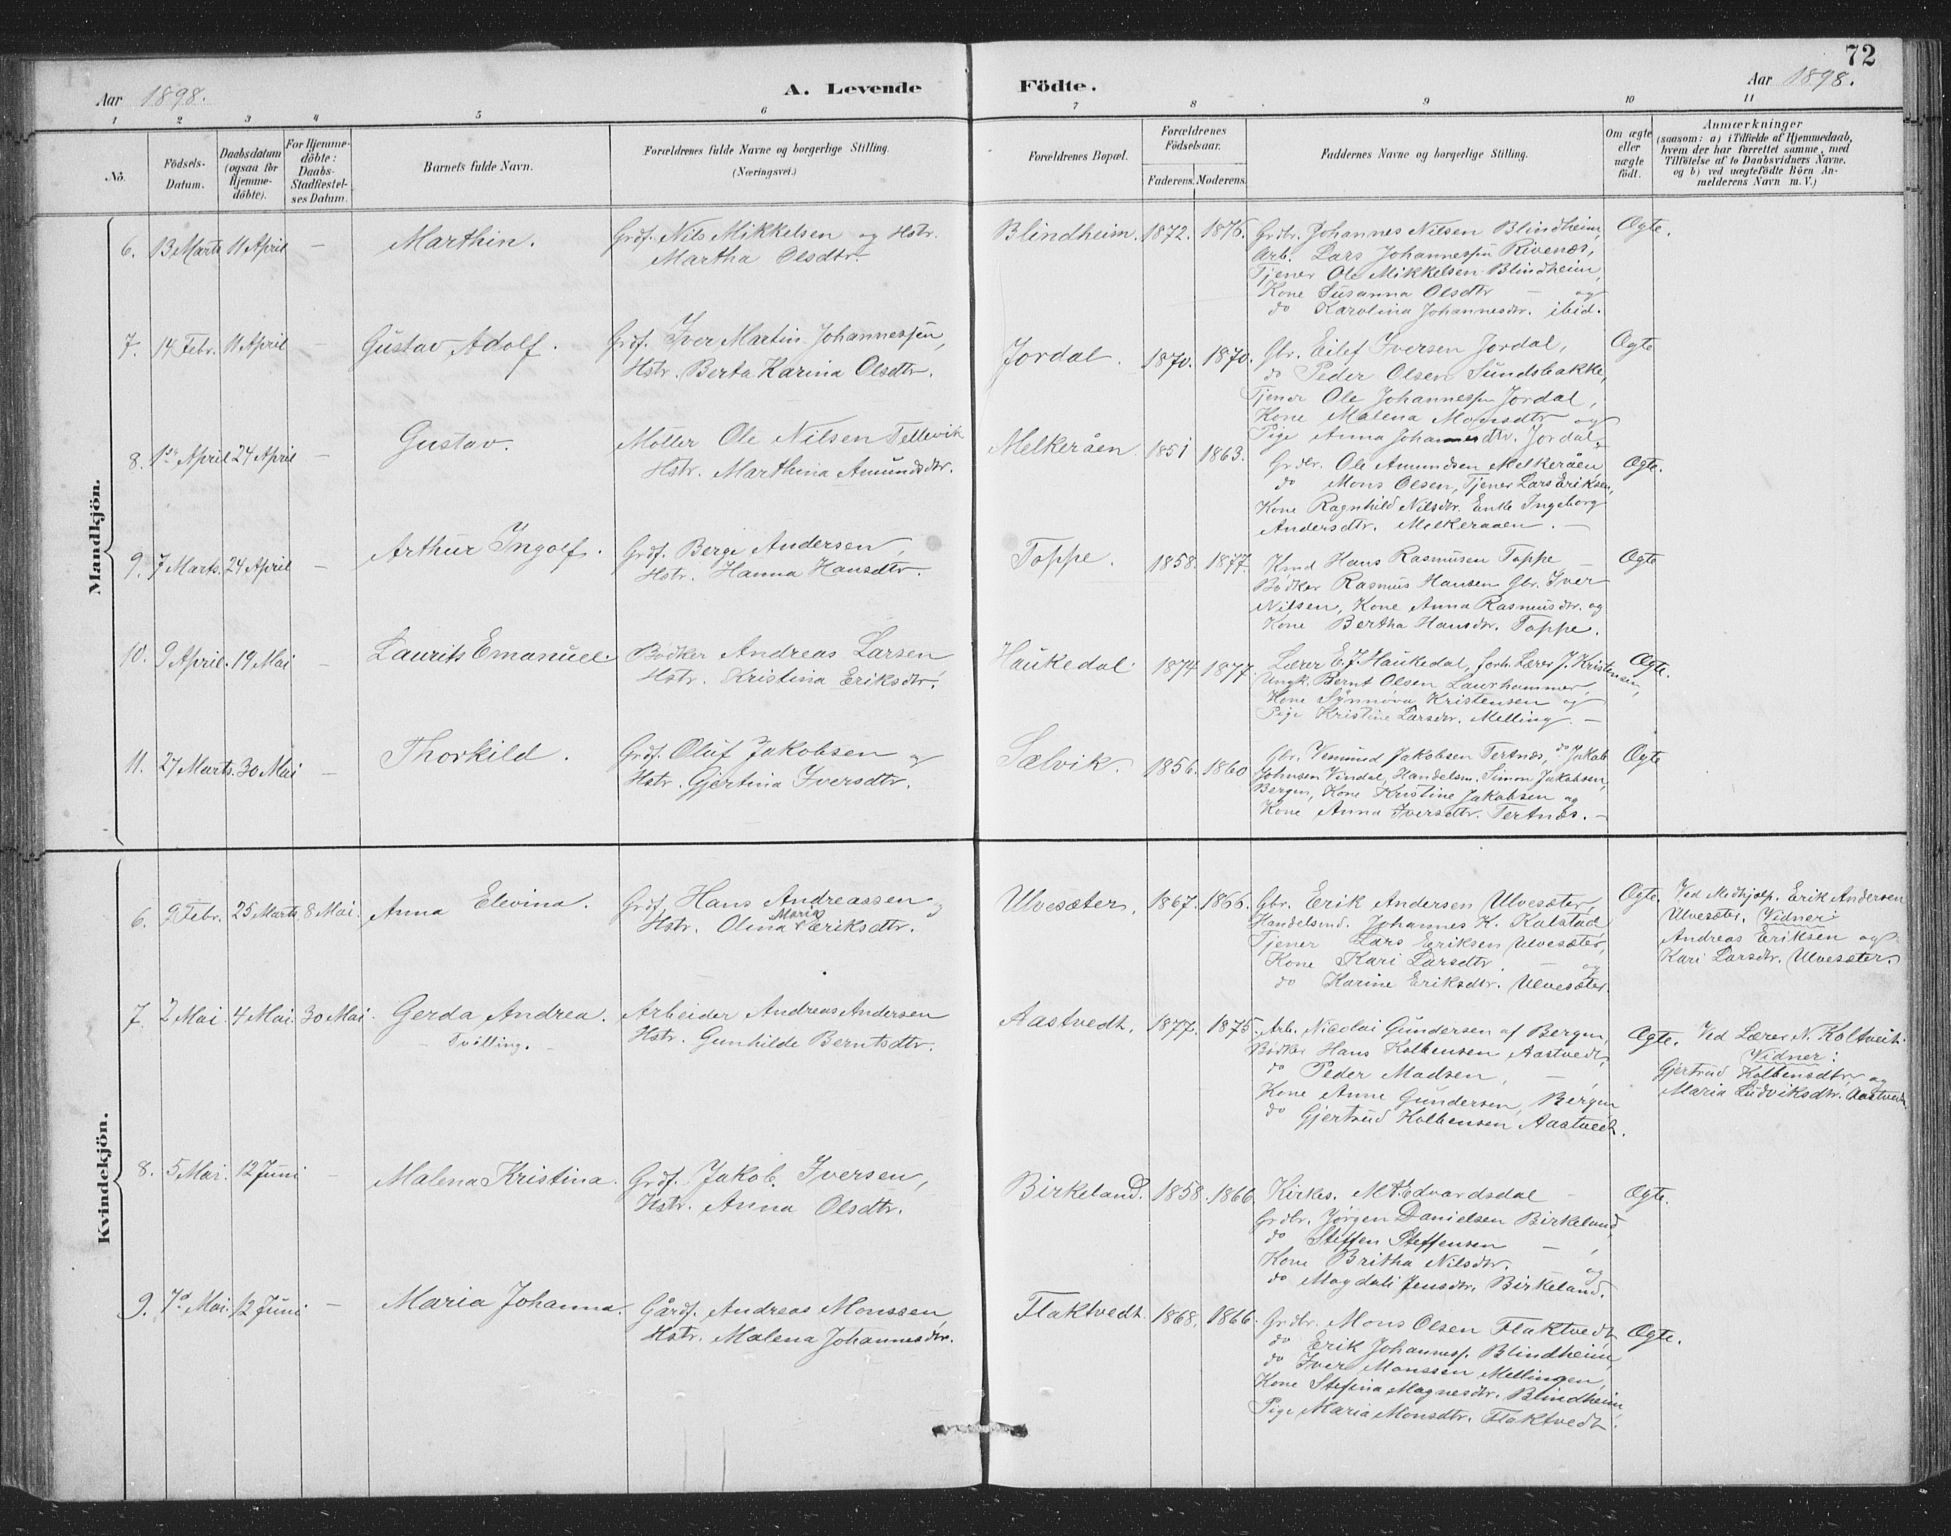 72
Aar 1898.
A. Levende Födte.
Aar 1898.
1 2 3 4 5 6 7 8 9 10 11
Nô.
Födsels-Datum.
Daabsdatum (ogsaa för Hjemmedöbte).
For Hjemmedöbte: Daabs-Stadfæstelses Datum.
Barnets fulde Navn.
Forældrenes fulde Navne og borgerlige Stilling. (Næringsvei.)
Forældrenes Bopæl.
Forældrenes Födselsaar.
Faderens. Moderens.
Faddernes Navne og borgerlige Stilling.
Om ægte eller uægte födt.
Anmærkninger (saasom: a) i Tilfælde af Hjemmedaab, hvem der har forrettet samme, med Tilföielse af to Daabsvidners Navne, og b) ved uægtefödte Börn Anmelderens Navn m. V.)
Mandkjön.
6. 13 Marts 11 April — Marthin. Grdf. Nils Mikkelsen og Hstr. Blindheim. 1872. 1876. Grdbr. Johannes Nilsen Blindheim, Ægte.
Martha Olsdtr. Arb. Lars Johannessen Rivenæs,
Tjener Ole Mikkelsen Blindheim,
Kone Susanna Olsdtr — og
do Karolina Johannesdtr. ibid.
7. 14 Febr. 11 April — Gustav Adolf. Grdf. Iver Martin Johannessen, Jordal. 1870. 1870. Gbr. Eilef Iversen Jordal, Ægte
Hstr. Berta Karina Olsdtr. do Peder Olsen Sundsbakke,
Tjener Ole Johannessen Jordal,
Kone Malena Monsdtr og
Pige Anna Johannesdtr. Jordal.
8. 1ste April 24 April — Gustav. Møller Ole Nilsen Tellevik Melkeråen 1851 1863. Grdbr. Ole Amundsen Melkeråen, Ægte.
Hstr. Marthina Amundsdtr. do Mons Olsen, Tjener Lars Eriksen,
Kone Ragnhild Nilsdtr. Enke Ingeborg
Andersdtr. Melkeraaen. —
9. 7 Marts. 24 April — Arthur Ingolf. Grdf. Berge Andersen, Toppe. 1858. 1877. Kmd Hans Rasmusen Toppe — Ægte
Hstr. Hanna Hansdtr. Bødker Rasmus Hansen Gbr. Iver
Nilsen, Kone Anna Rasmusdtr. og
Kone Bertha Hansdtr. Toppe.
10. 9 April. 19 Mai — Laurits Emanuel. Bødker Andreas Larsen Haukedal. 1874 1877. Lærer E. J. Haukedal, forh. Lærer J. Kristensen, Ægte.
Hstr. Kristina Eriksdtr. Ungk. Bernt Olsen Laurhammer,
Kone Synnøva Kristensen og
Pige Kristine Larsdtr. Melling. —
11. 27 Marts. 30 Mai — Thorkild. Grdf. Oluf Jakobsen og Sælvik. 1856. 1860 Gbr. Vemund Jakobsen Tertnæs, do Jakob Ægte
Hstr. Gjertina Iversdtr. Johnsen Vindal, Handelsm. Simon Jakobsen,
Bergen, Kone Kristine Jakobsen og
Kone Anna Iversdtr. Tertnæs. —
Kvindekjön.
6. 9 Febr. 25 Marts 8 Mai. Anna Elevina. Grdf. Hans Andreassen og Ulvesæter. 1867. 1866. Gbr. Erik Andersen Ulvesæter, Ægte. Ved Medhjelp. Erik Andersen
Hstr. Olina Maria Eriksdtr. Handelsmd. Johannes K. Kalstad Ulvesæter. Vidner:
Tjener Lars Eriksen Ulvesæter, Andreas Eriksen og
Kone Kari Larsdtr. — og Kari Larsdtr. Ulvesæter.
do Karine Eriksdtr. Ulvesæter.
7. 2 Mai. 4 Mai. 30 Mai. Gerda Andrea. Arbeider Andreas Andersen Aastvedt. 1877. 1875. Arb. Nicolai Gundersen af Bergen, Ægte. Ved Lærer N. Koltveit.
— Tvilling. — Hstr. Gunhilde Berntsdtr. Bødker Hans Kolbensen Aastvedt, Vidner:
do Peder Madsen, — , Gjertrud Kolbensdtr. og
Kone Anne Gundersen, Bergen Maria Ludviksdtr. Aastvedt.
do Gjertrud Kolbensen Aastvedt.
8. 5 Mai. 12 Juni — Malena Kristina. Grdf. Jakob Iversen, Birkeland. 1858. 1866. Kirkes. M. Edvardsdal — Ægte.
Hstr. Anna Olsdtr. Grdbr. Jørgen Danielsen Birkeland,
do Steffen Steffensen — ,
Kone Britha Nilsdtr. og
do Magdali Jensdtr. Birkeland.
9. 7de Mai. 12 Juni — Maria Johanna. Gårdf. Andreas Monssen, Flaktvedt. 1868. 1866. Grdbr. Mons Olsen Flaktvedt, Ægte.
Hstr. Malena Johannesdtr. do Erik Johanness. Blindheim,
do Iver Monssen Mellingen,
Kone Stefina Magnesdtr. Blindheim
Pige Maria Monsdtr. Flaktvedt.